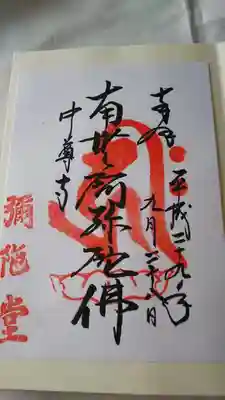 奉拝
平成二九年
九月二十八日
南無阿弥陀佛
中尊寺
彌陀堂